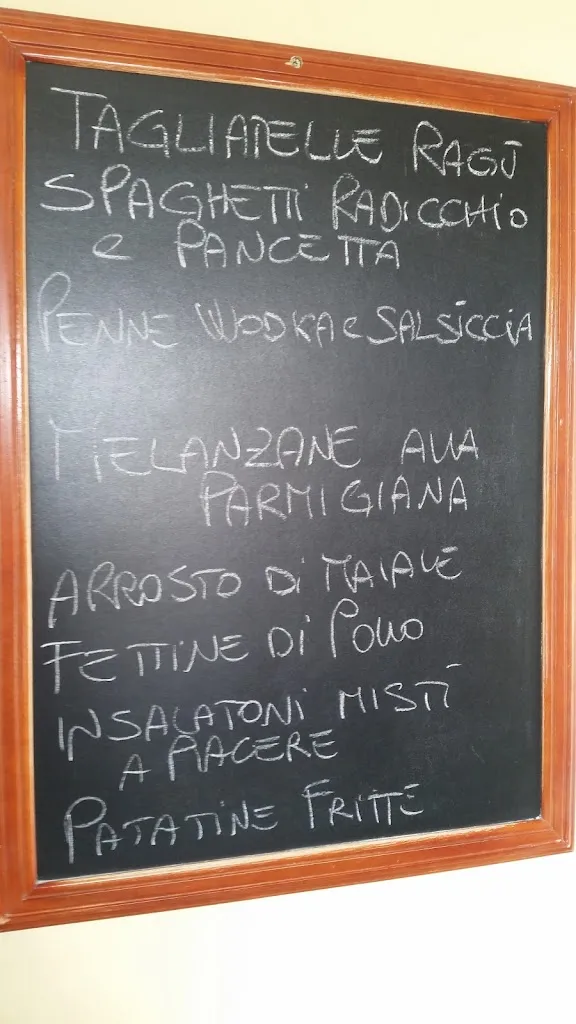 TAGLIATELLE RAGÙ
SPAGHETTI RADICCHIO
e PANCETTA
PENNE WODKA e SALSICCIA
MELANZANE ALLA
PARMIGIANA
ARROSTO Di MAIALE
FETTINE Di POLLO
INSALATONI MISTI
A PIACERE
PATATINE FRITTE